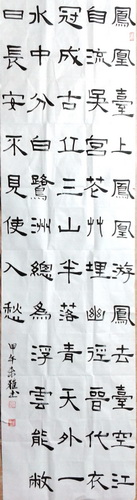 鳳凰臺上鳳凰游鳳去臺空江
自流吳宮花艸埋幽徑晉代衣
冠成古丘三山半落青天外一
水中分白鷺洲總為浮雲能敝
日長安不見使人愁
甲午